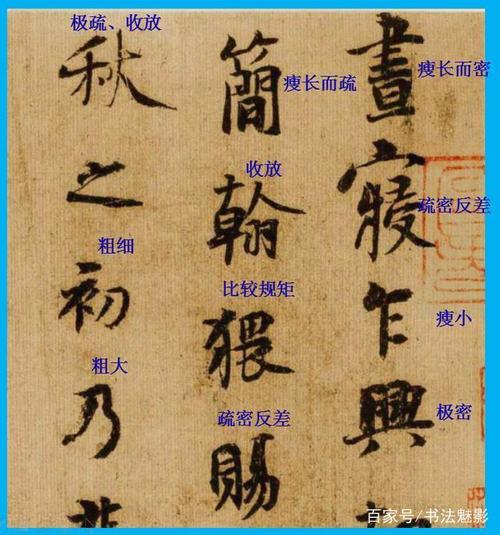 晝寢乍興
簡翰猥賜
秋之初乃
瘦长而密
疏密反差
瘦小
极密
瘦长而疏
收放
比较规矩
疏密反差
极疏、收放
粗细
粗大
百家号/书法魅影